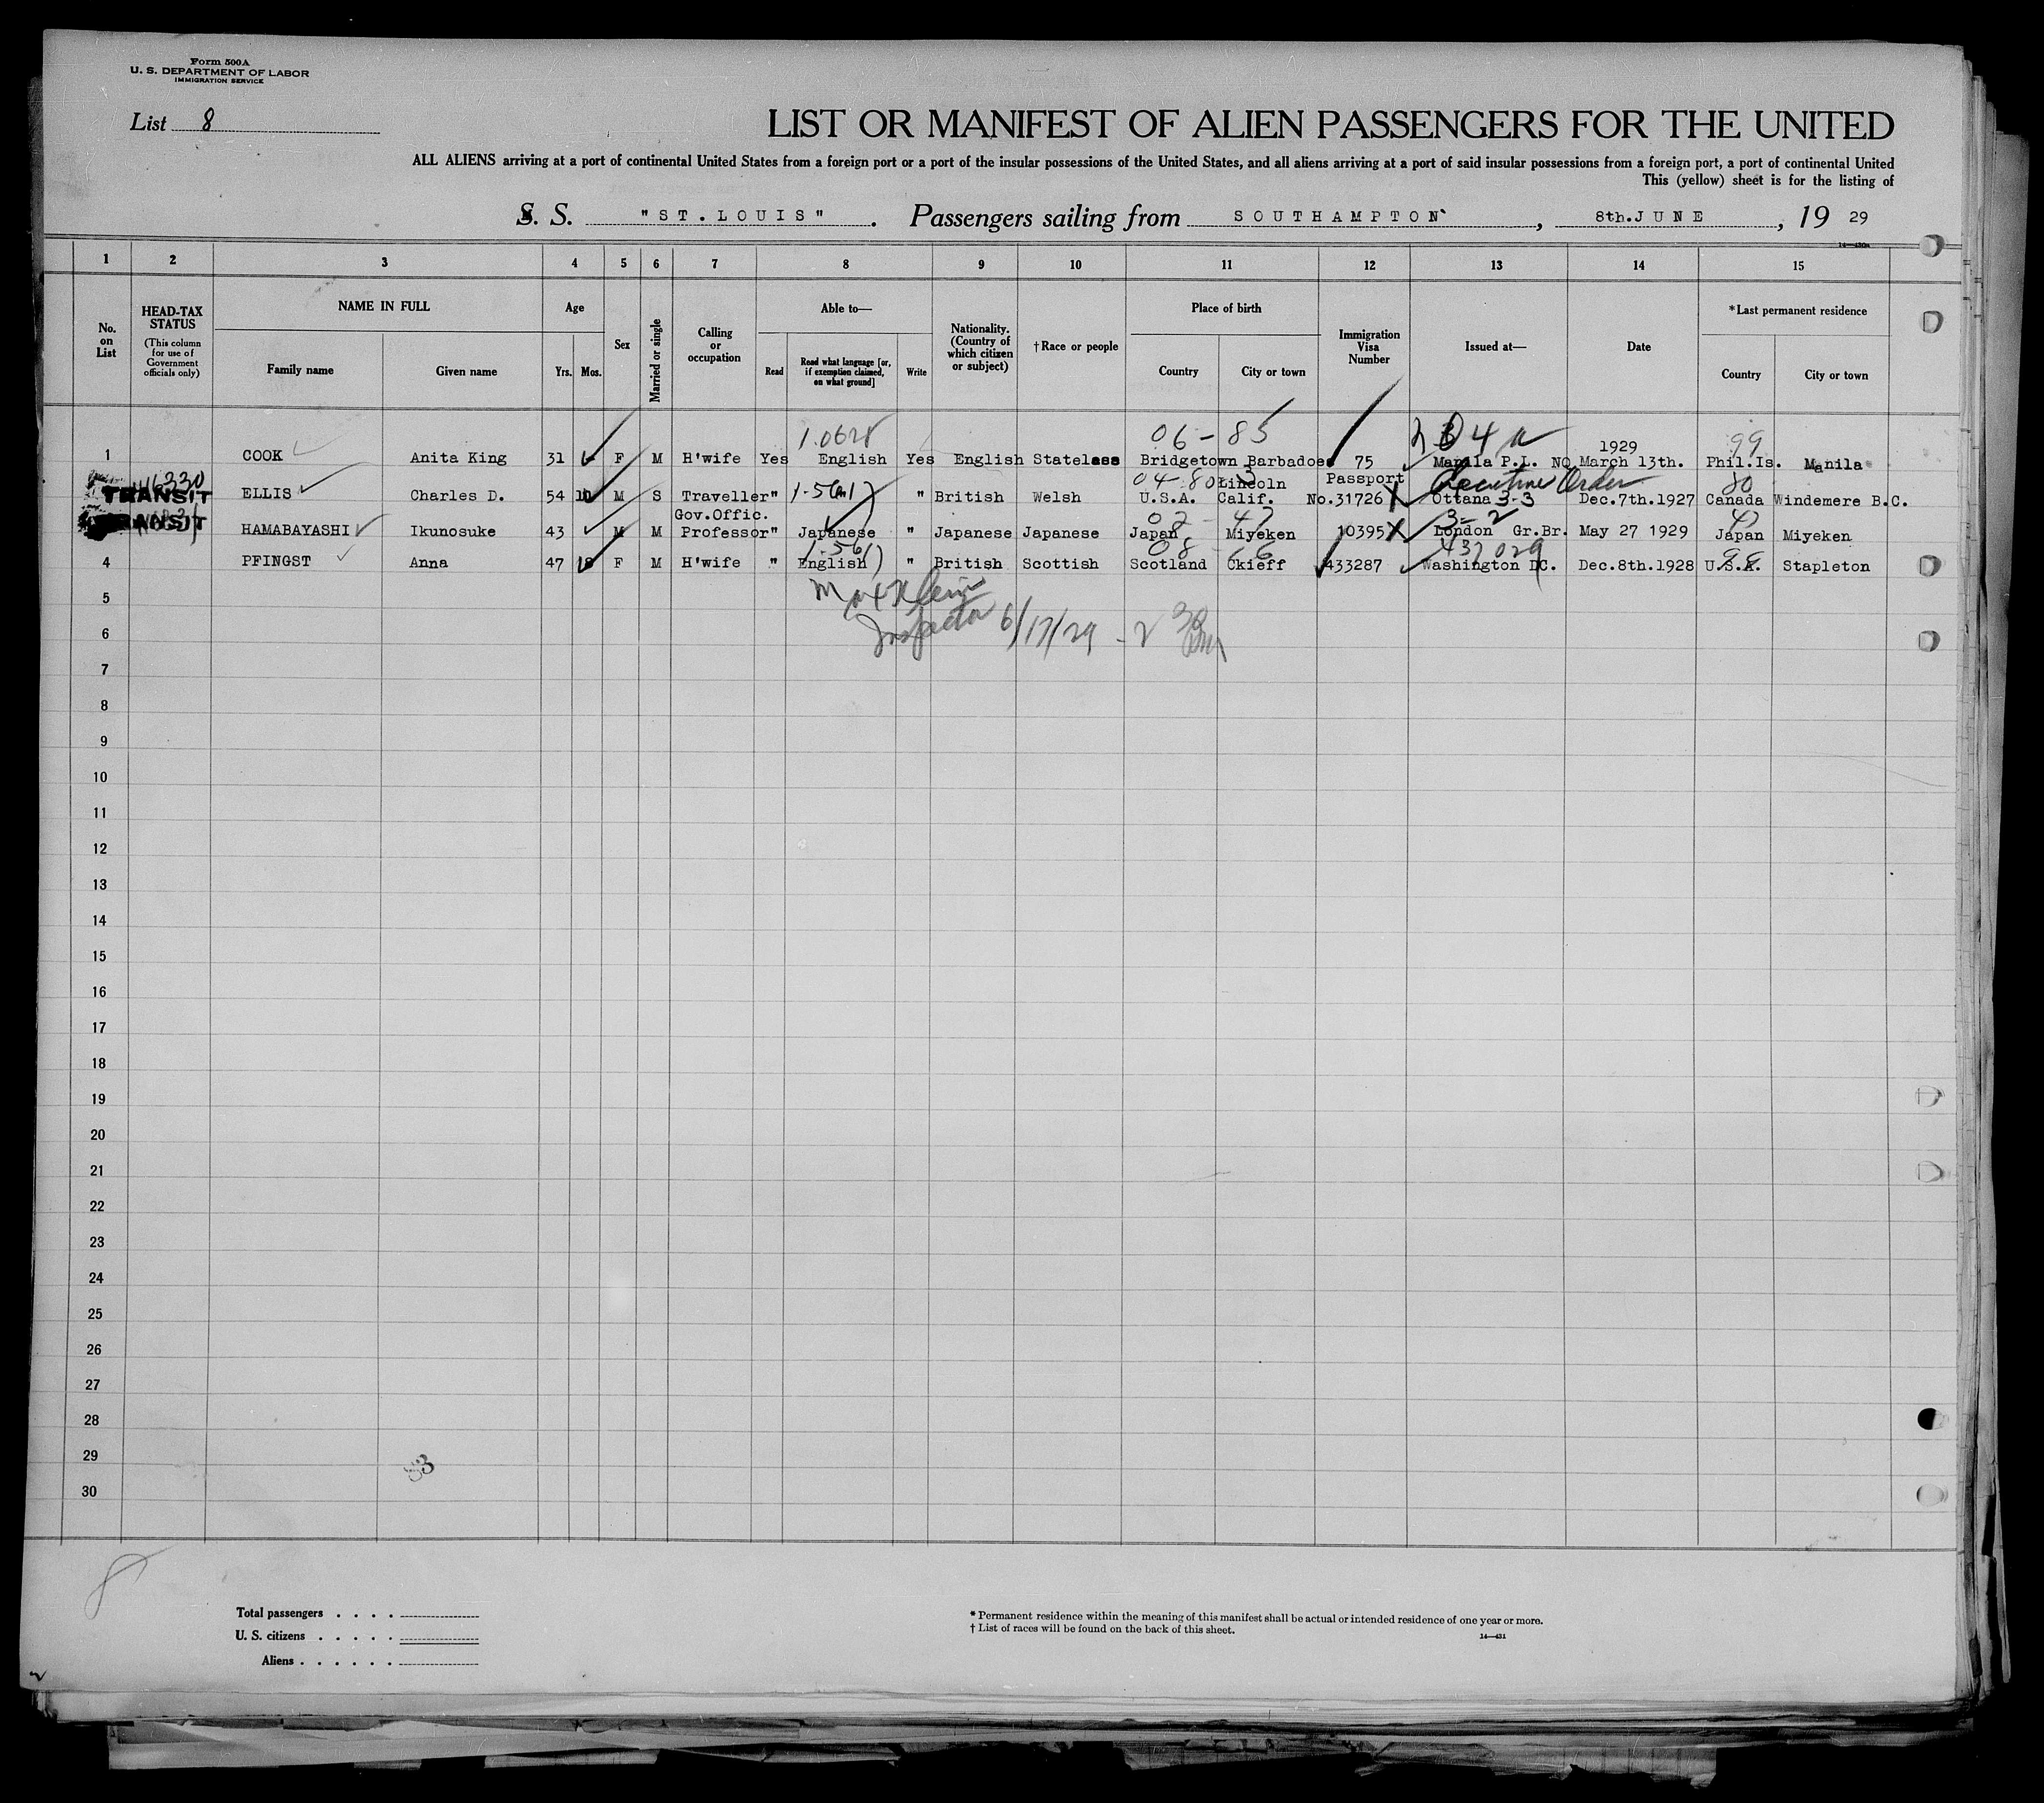 Form 500A
U. S. DEPARTMENT OF LABOR
IMMIGRATION SERVICE
List 8
LIST OR MANIFEST OF ALIEN PASSENGERS FOR THE UNITED
ALL ALIENS arriving at a port of continental United States from a foreign port or a port of the insular possessions of the United States, and all aliens arriving at a port of said insular possessions from a foreign port, a port of continental United
This (yellow) sheet is for the listing of
S. S. "ST.LOUIS". Passengers sailing from SOUTHAMPTON, 8th.JUNE, 19 29
1 2 3 4 5 6 7 8 9 10 11 12 13 14 15
No. on List
HEAD-TAX STATUS
(This column for use of Government officials only)
NAME IN FULL
Family name Given name
Age
Yrs. Mos.
Sex
Married or single
Calling or occupation
Able to—
Read
Read what language [or, if exemption claimed, on what ground]
Write
Nationality. (Country of which citizen or subject)
†Race or people
Place of birth
Country City or town
Immigration Visa Number
Issued at—
Date
*Last permanent residence
Country City or town
06 - 85 1929 99
1 COOK Anita King 31 F M H'wife Yes English Yes English Stateless Bridgetown Barbadoes 75 Manila P.L. NO March 13th. Phil.Is. Manila
Lincoln Passport Executive Order
TRANSIT ELLIS Charles D. 54 M S Traveller " " British Welsh U.S.A. Calif. No.31726 Ottana 3-3 Dec.7th.1927 Canada Windemere B.C.
Gov.Offic.
TRANSIT HAMABAYASHI Ikunosuke 43 M M Professor " Japanese " Japanese Japanese Japan Miyeken 10395 London Gr.Br. May 27 1929 Japan Miyeken
4 PFINGST Anna 47 F M H'wife " English " British Scottish Scotland Ckieff 433287 Washington DC. Dec.8th.1928 U.S.A. Stapleton
5
Inspector 6/17/29 - 2 30 PM
6
7
8
9
10
11
12
13
14
15
16
17
18
19
20
21
22
23
24
25
26
27
28
29
30
8
Total passengers . . . .
U. S. citizens . . . . .
Aliens . . . . . .
* Permanent residence within the meaning of this manifest shall be actual or intended residence of one year or more.
† List of races will be found on the back of this sheet.
14—431